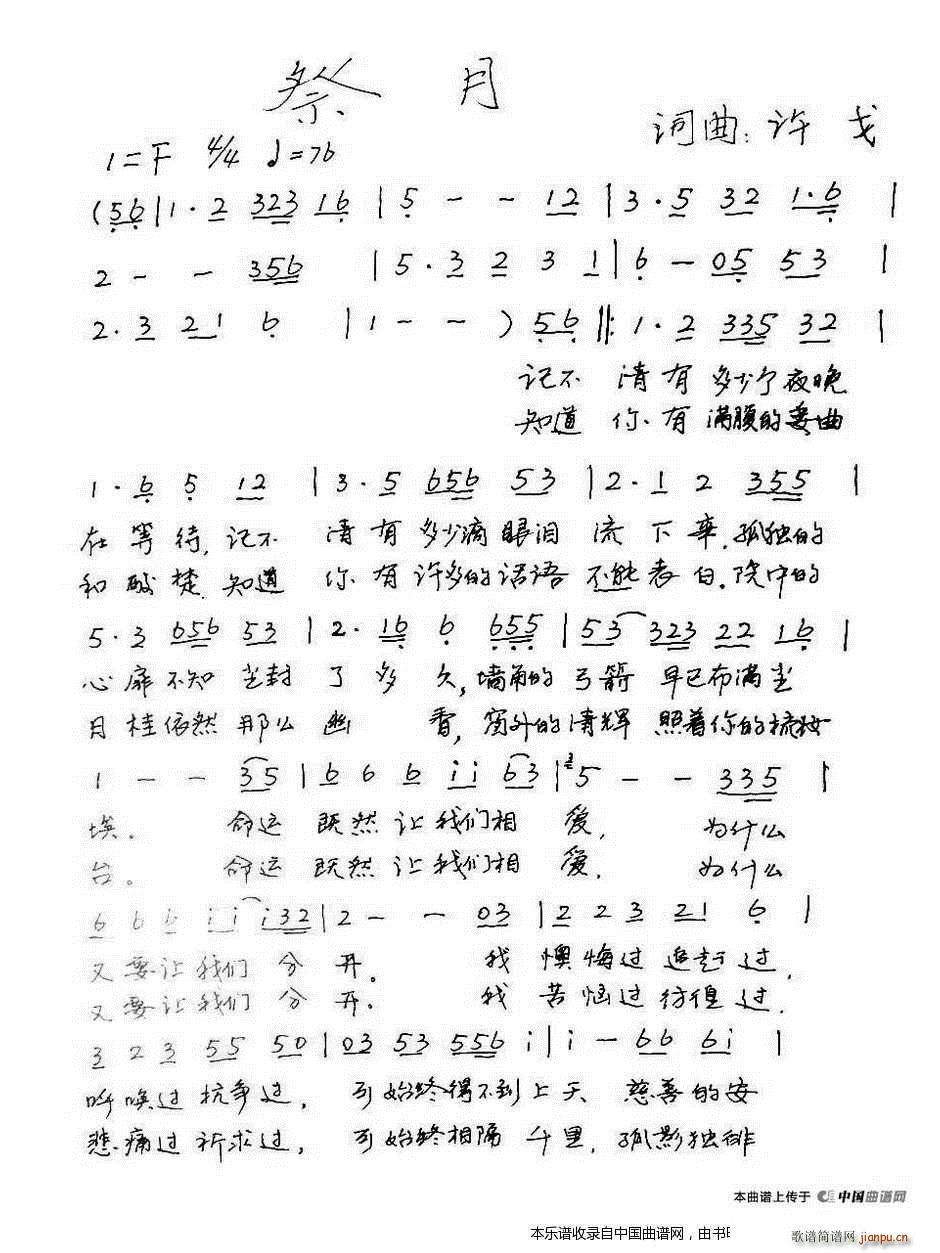 祭 月
词曲：许 戈
1=F 4/4 ♩=76
(56|1·2 323 16|5 - - 12|3·5 32 1·6|
2 - - 356 |5·3 2 3 1|6 - 05 53|
2·3 21 6 |1 - - ) 56 ‖:1·2 335 32|
记不 清有多少个夜晚
知道 你有满腹的委曲
1·6 5 12 |3·5 656 53|2·1 2 355|
在等待，记不 清有多少滴眼泪 流下来，孤独的
和酸楚，知道 你有许多的话语 不能表白，院中的
5·3 656 53|2·16 6 665|53 323 22 16|
心扉不知尘封了多久，墙角的弓箭早已布满尘
月桂依然那么幽 香，窗外的清辉照着你的梳妆
1 - - 35|6 6 6 ii 63|5 - - 335|
埃。 命运既然让我们相 爱， 为什么
台。 命运既然让我们相 爱， 为什么
6 6 6 ii i32|2 - - 03|2 2 3 21 6|
又要让我们分开。 我懊悔过追赶过，
又要让我们分开。 我苦恼过彷徨过，
3 2 3 55 50|03 53 556 i|i - 66 6i|
呼唤过抗争过， 可始终得不到上天 慈善的安
悲痛过祈求过， 可始终相隔千里，孤影独徘
本曲谱上传于 中国曲谱网
本乐谱收录自中国曲谱网，由书
歌谱简谱网 jianpu.cn